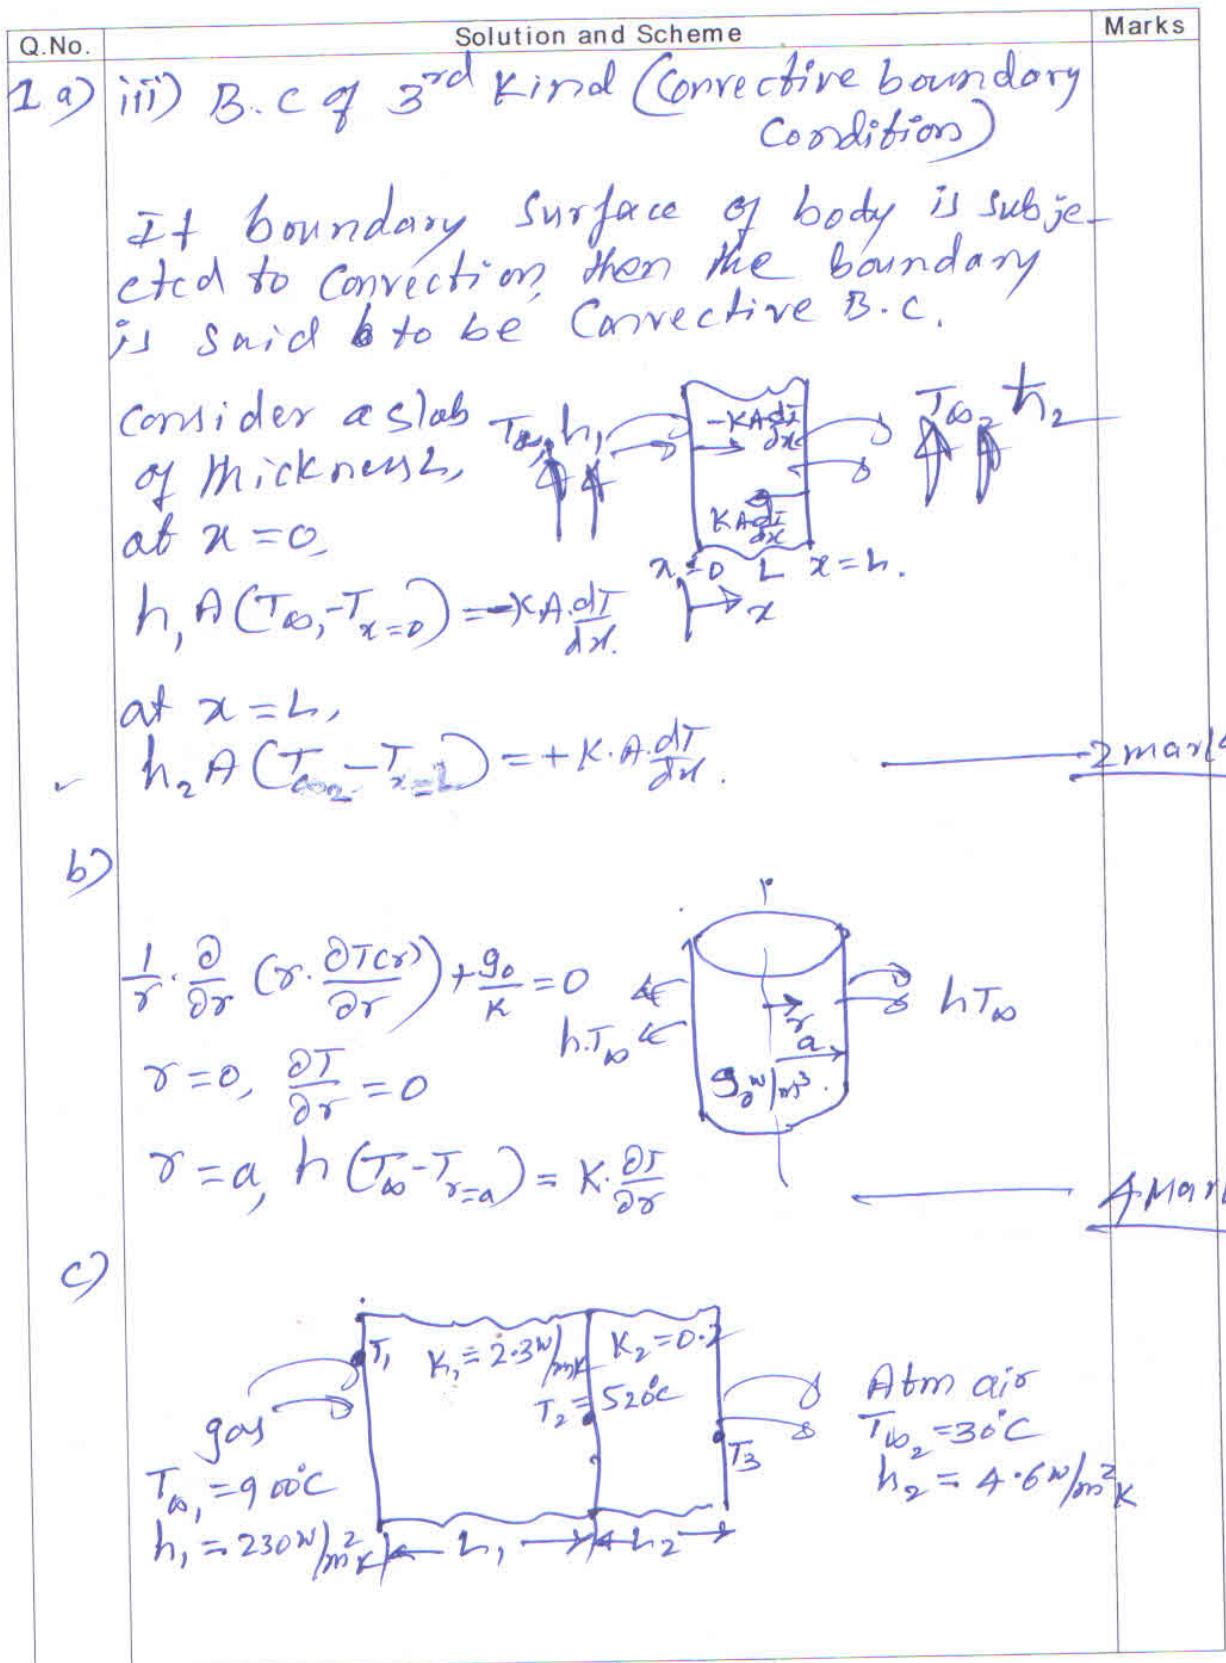 Q.No. Solution and Scheme Marks
1 a) iii) B.C of 3rd Kind (Convective boundary
Condition)
If boundary surface of body is subje-
cted to convection, then the boundary
is said to be Convective B.C.
Consider a slab
of thickness L,
at x = 0,
T∞1 h1
-KA dT/dx
T∞2 h2
KA dT/dx
x=0 L x=L.
x
h1 A (T∞1 - T x=0) = -K.A. dT/dx.
at x = L,
h2 A (T∞2 - T x=L) = + K.A. dT/dx.
2 marks
b)
1/r . ∂/∂r (r. ∂T(r)/∂r) + g0/K = 0
h.T∞
r
a
hT∞
g0 W/m³.
r = 0, ∂T/∂r = 0
r = a, h (T∞ - T r=a) = K. ∂T/∂r
4 Mar
c)
T1 K1 = 2.3 W/mK K2 = 0.2
T2 = 520°C
T3
gas
T∞1 = 900°C
h1 = 230 W/m²K
L1 L2
Atm air
T∞2 = 30°C
h2 = 4.6 W/m²K